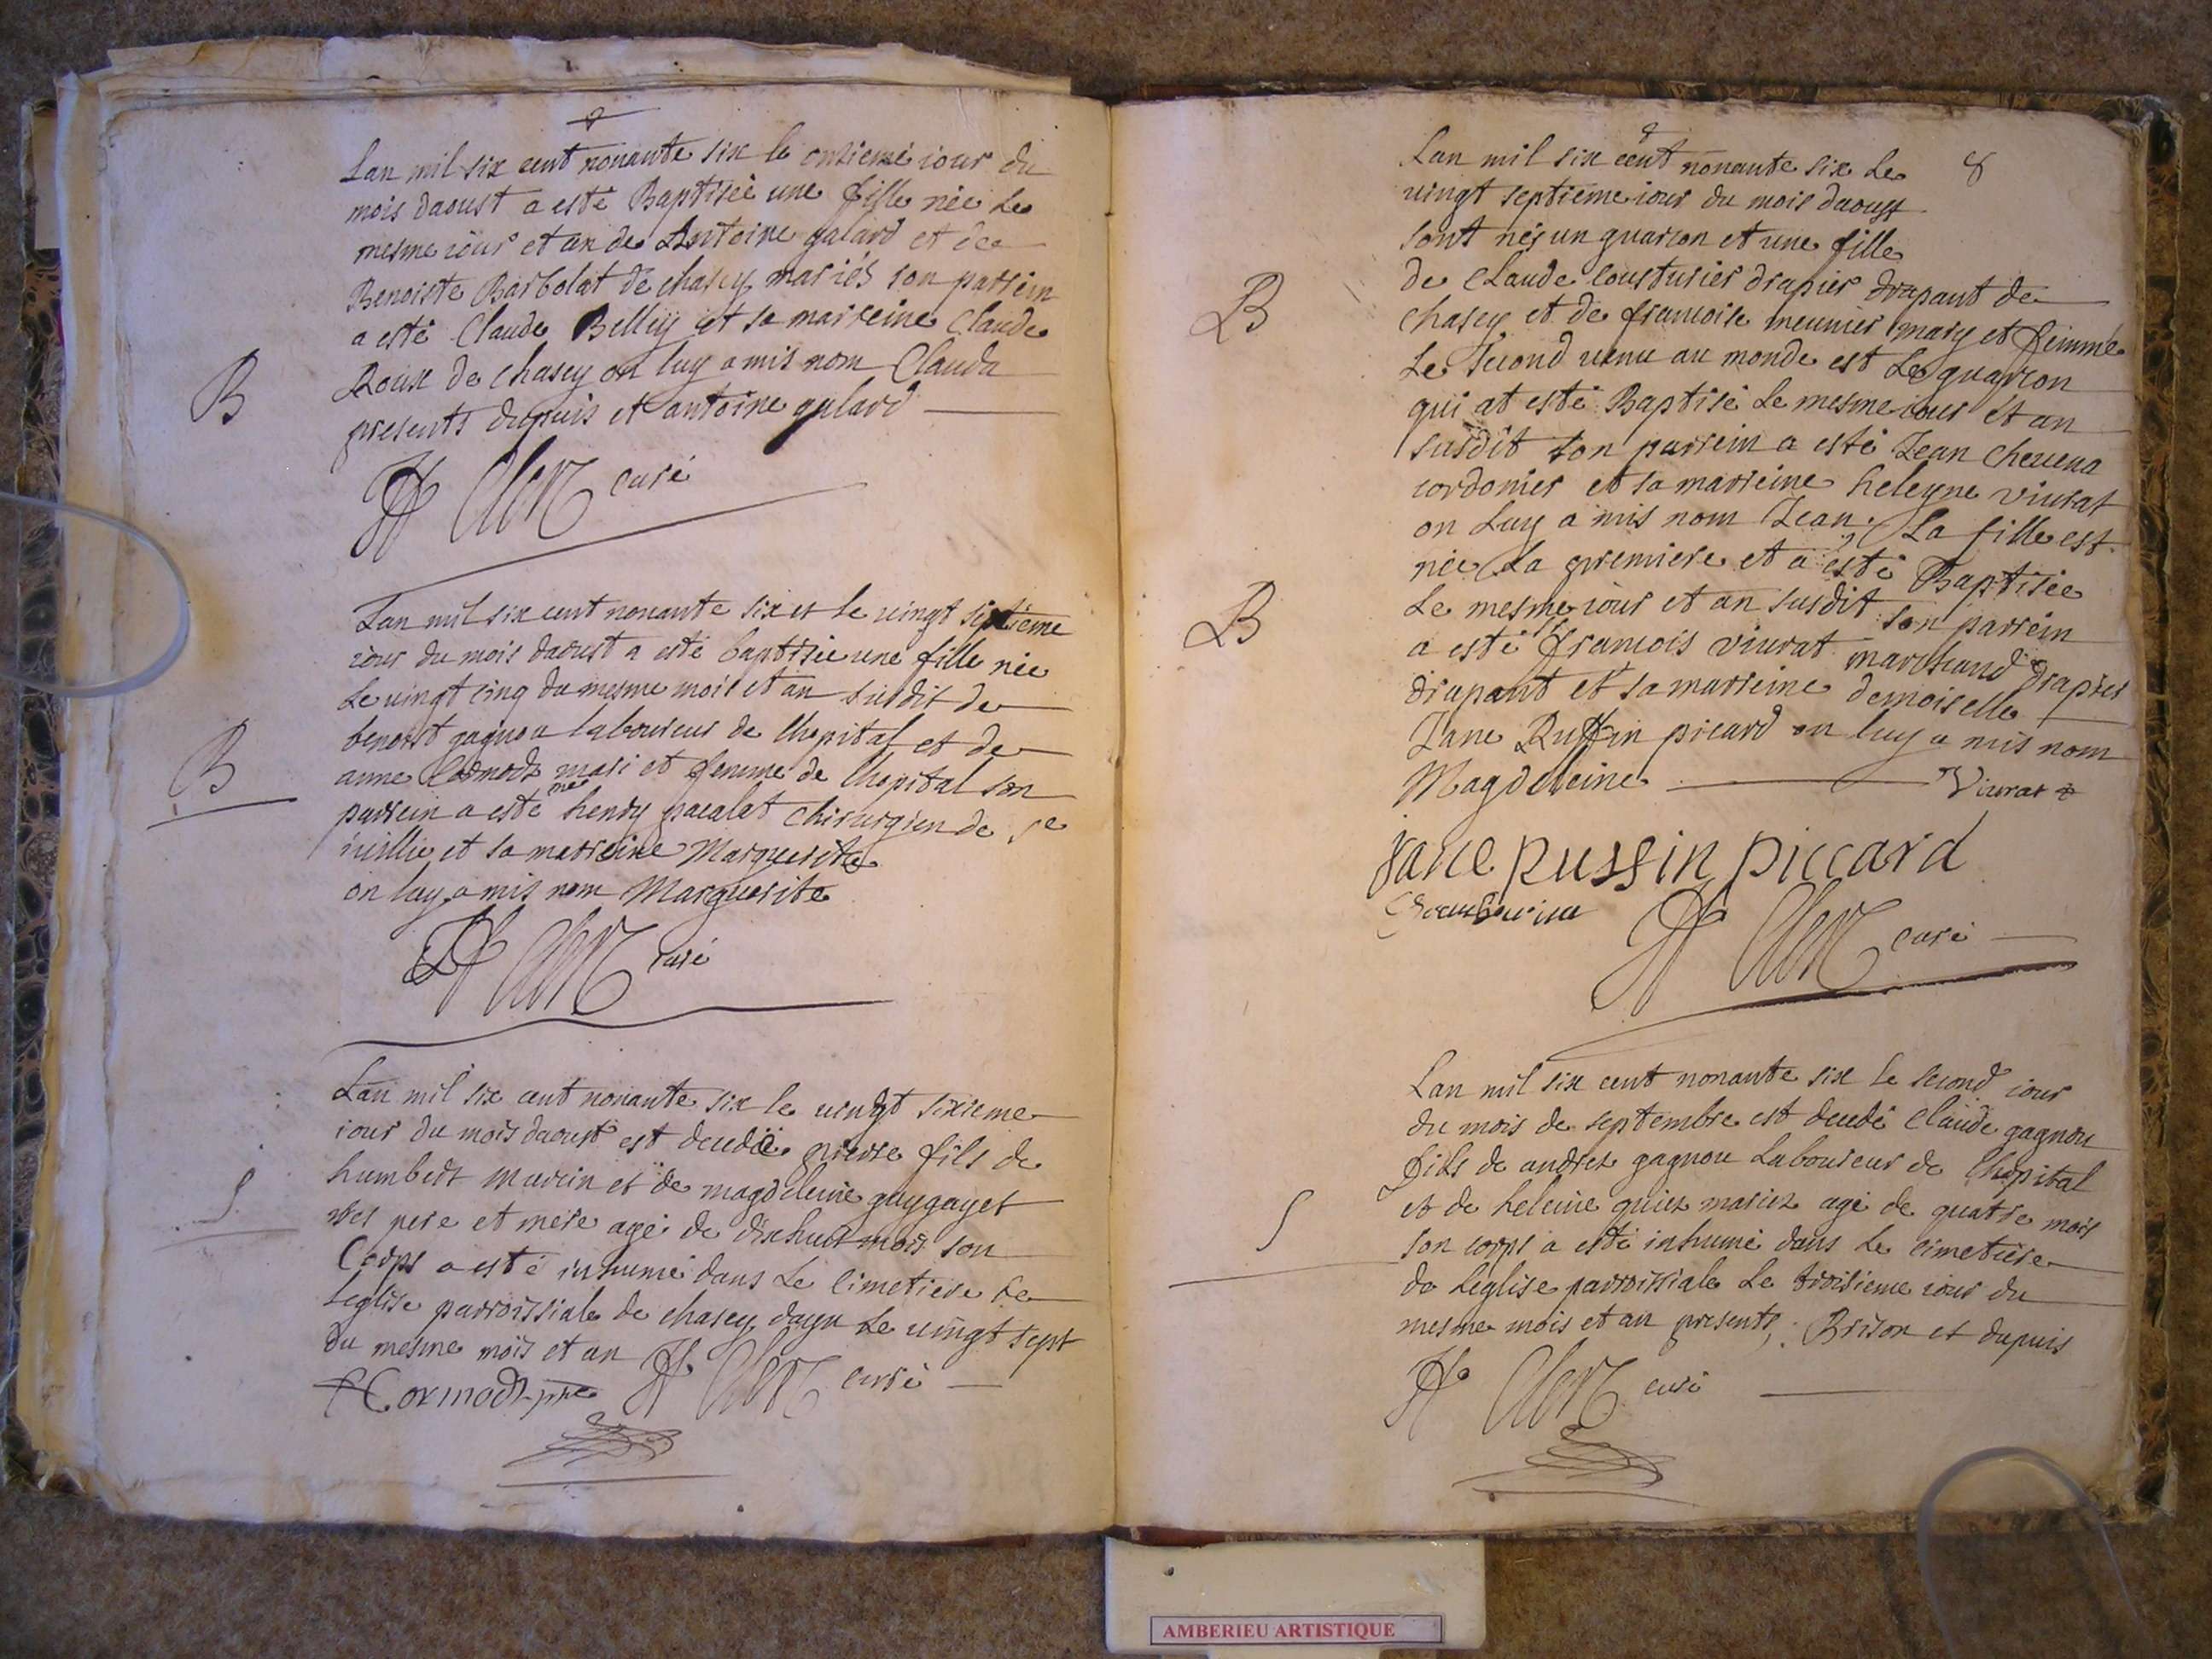 Lan mil six cent nonante six le onzieme iour du
mois daoust a esté Baptisée une fille née Le
mesme iour et an de Antoine galard et de
Benoiste Barbolat de chasey mariés son parrein
a esté Claude Belley et sa marreine Claude
Roux de chasey on luy a mis nom Clauda
B
presents dupuis et antoine galard
curé
Lan mil six cent nonante six et le vingt septieme
iour du mois daoust a esté baptisée une fille née
Le vingt cinq du mesme mois et an susdit de
benoist gagnou laboureur de lhopital et de
B
anne Cormodz mari et femme de lhopital son
parrein a esté me henry pacalat chirurgien de
et sa marreine Marguerite
on luy a mis nom Marguerite
curé
Lan mil six cent nonante six le vingt sixieme
iour du mois daoust est decedé pierre fils de
humbert marin et de magdeleine guygayet
S
ses pere et mere agé de dixhuit mois son
Corps a esté inhumé dans Le Cimetiere de
Leglise parroissiale de chasey dayn Le vingt sept
du mesme mois et an
Cormodz pre curé
8
Lan mil six cent nonante six Le
vingt septieme iour du mois daoust
sont nés un guarcon et une fille
de Claude cousturier drapier drapant de
B
chasey et de francoise meunier mary et femme
Le second venu au monde est Le guarcon
qui at esté Baptisé Le mesme iour et an
susdit son parrein a esté Jean chevena
cordonier et sa marreine heleyne viurat
on Luy a mis nom Jean, La fille est
née La premiere et a esté Baptisée
B
Le mesme iour et an susdit son parrein
a esté francois viurat marchand drapier
drapant et sa marreine demoiselle
Jane Ruffin picard on luy a mis nom
Magdeleine Viurat
jane russin piccard
curé
Lan mil six cent nonante six le second iour
du mois de septembre est decedé Claude gagnou
fils de andrez gagnou Laboureur de lhopital
et de heleine mariez agé de quatre mois
S
son corps a esté inhumé dans Le cimetiere
de Leglise parroissiale Le troisieme iour du
mesme mois et an presents, Brison et dupuis
curé
AMBERIEU ARTISTIQUE